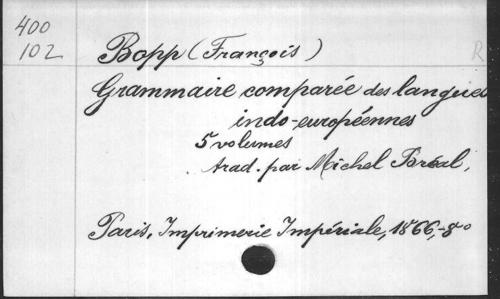 400
102
Bopp (François)
R
Grammaire comparée des langues
indo-européennes
5 volumes
trad. par Michel Bréal,
Paris, Imprimerie Impériale, 1866,-8°